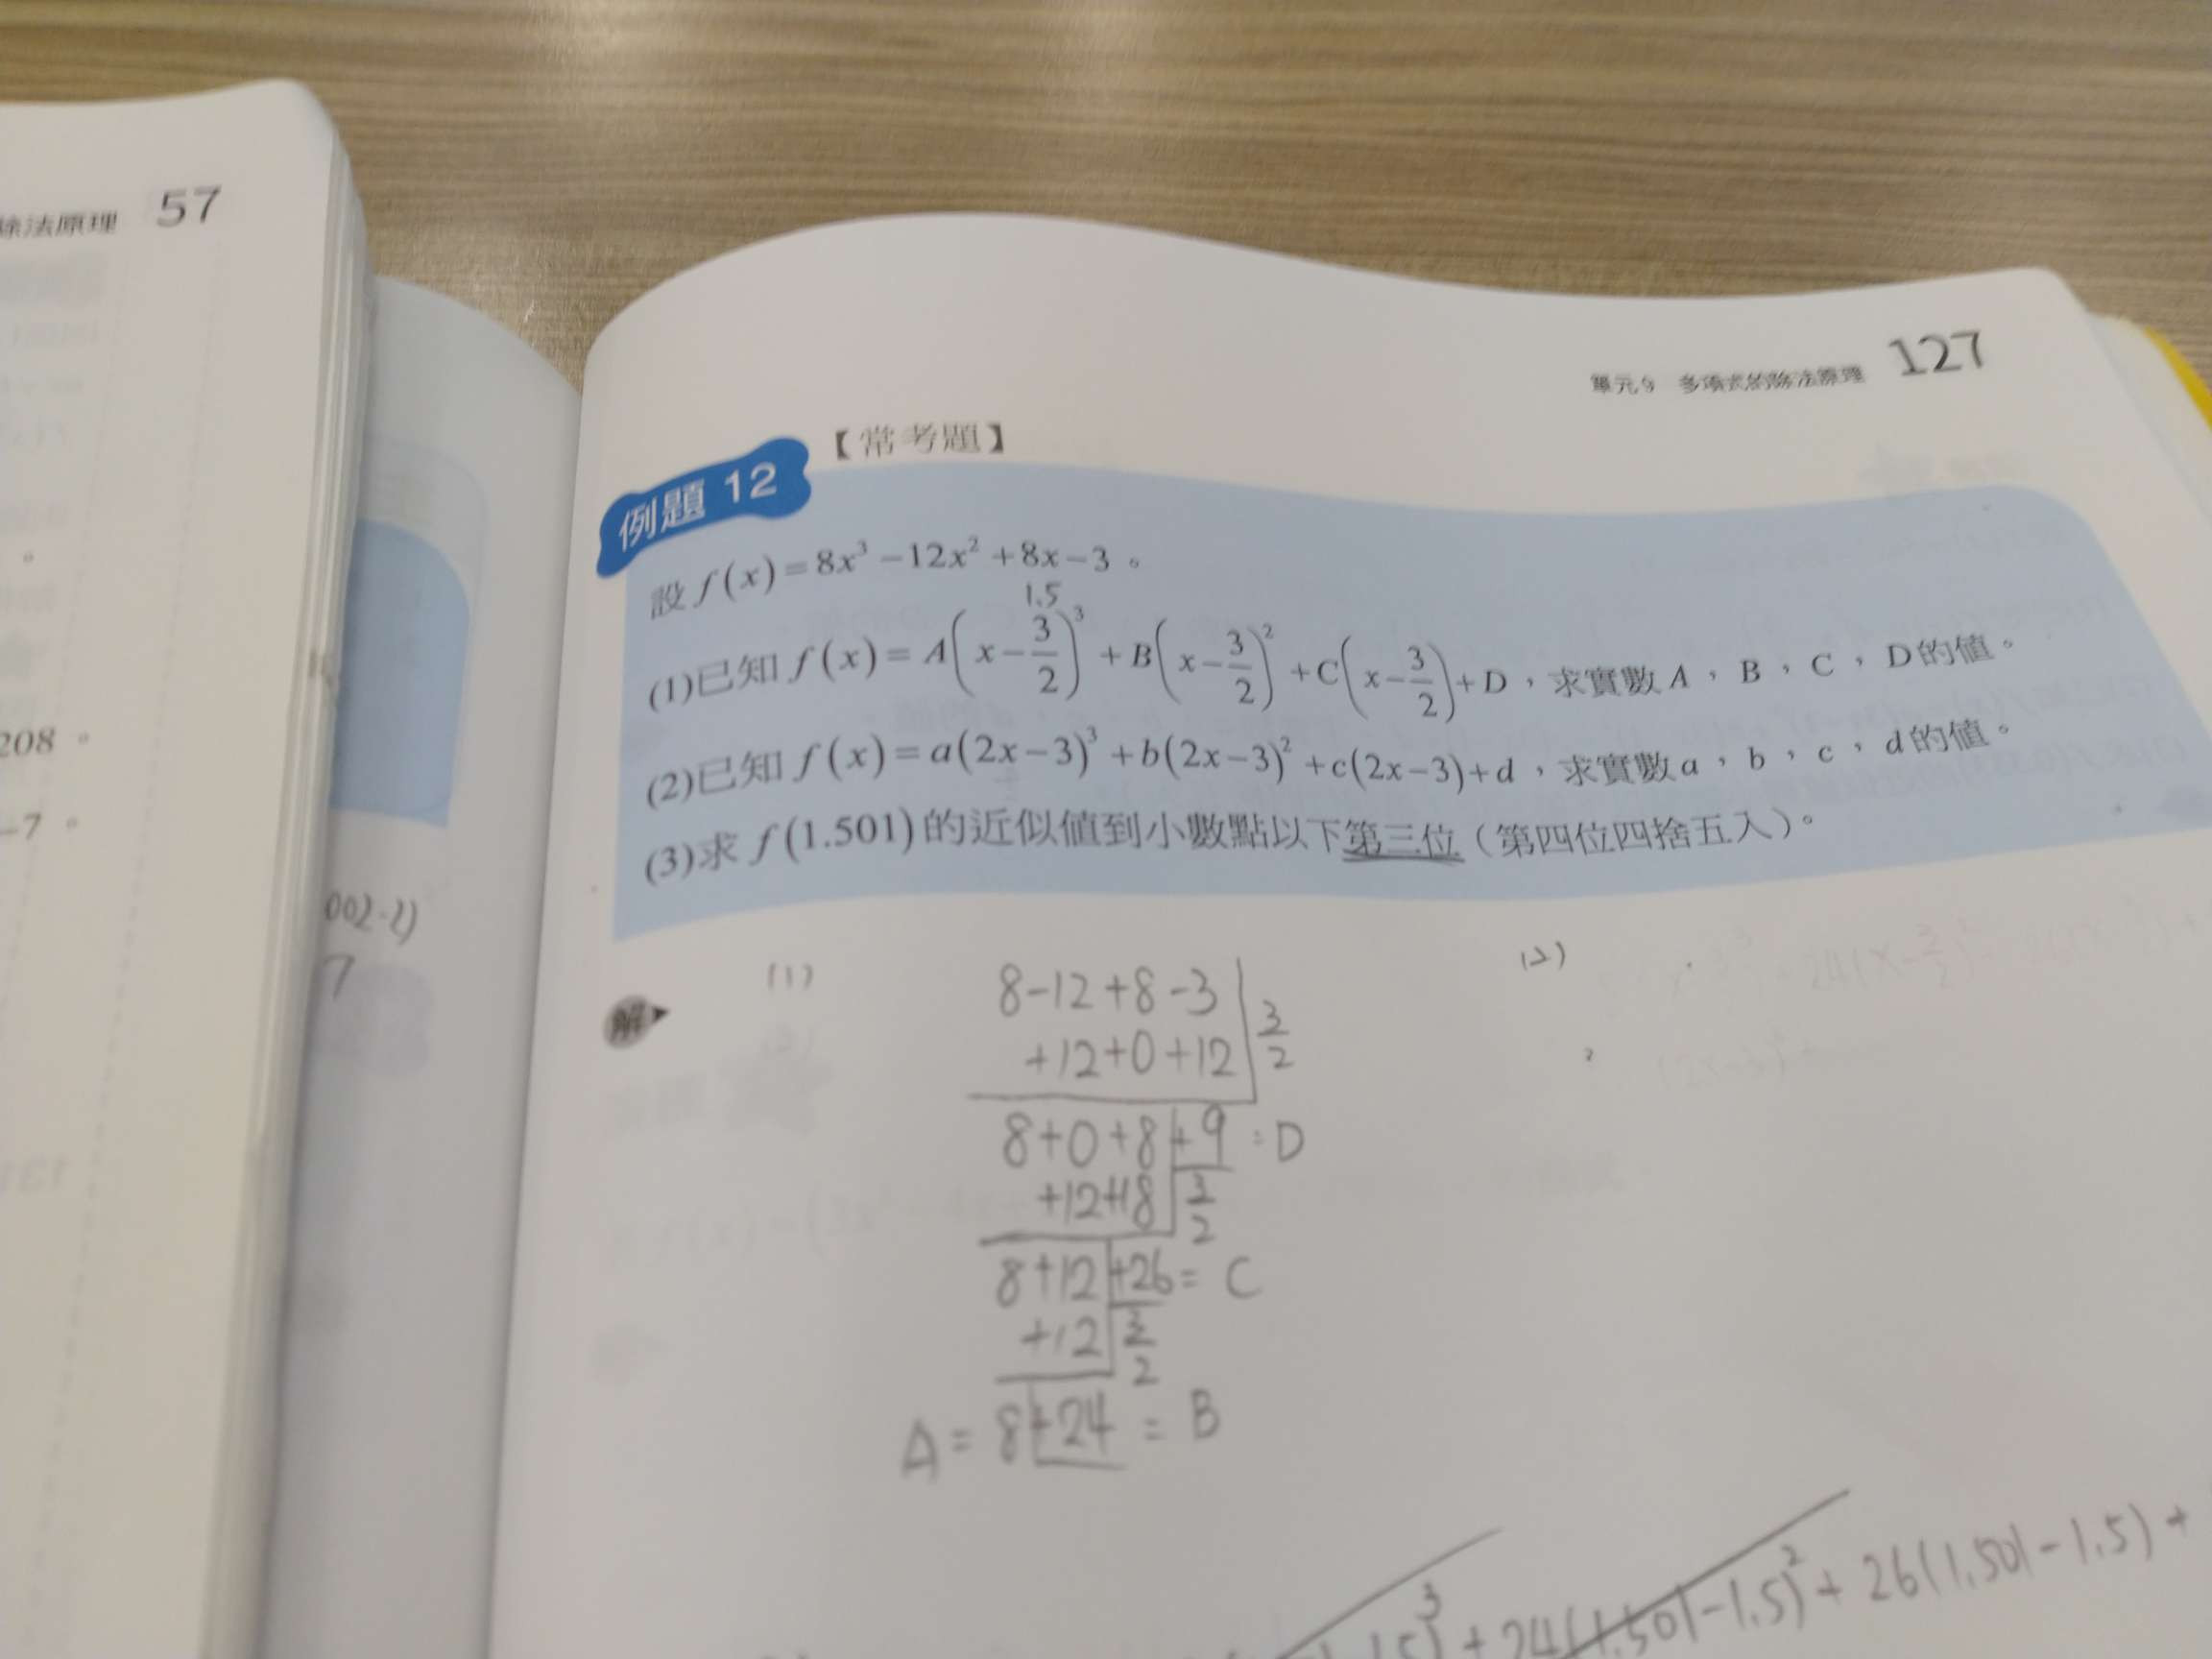 除法原理 57
208。
-7。
002-1)
7
單元9 多項式的除法原理 127
例題 12 【常考題】
設 f(x)=8x³-12x²+8x-3。
1.5
(1)已知 f(x)=A(x-3/2)³+B(x-3/2)²+C(x-3/2)+D,求實數 A,B,C,D的值。
(2)已知 f(x)=a(2x-3)³+b(2x-3)²+c(2x-3)+d,求實數a,b,c,d的值。
(3)求 f(1.501)的近似值到小數點以下第三位(第四位四捨五入)。
解 (1) (2)
8-12+8-3
+12+0+12 3/2
8+0+8+9 = D
+12+18 3/2
8+12+26 = C
+12 3/2
A = 8+24 = B
³+24(1.501-1.5)²+26(1.501-1.5)+